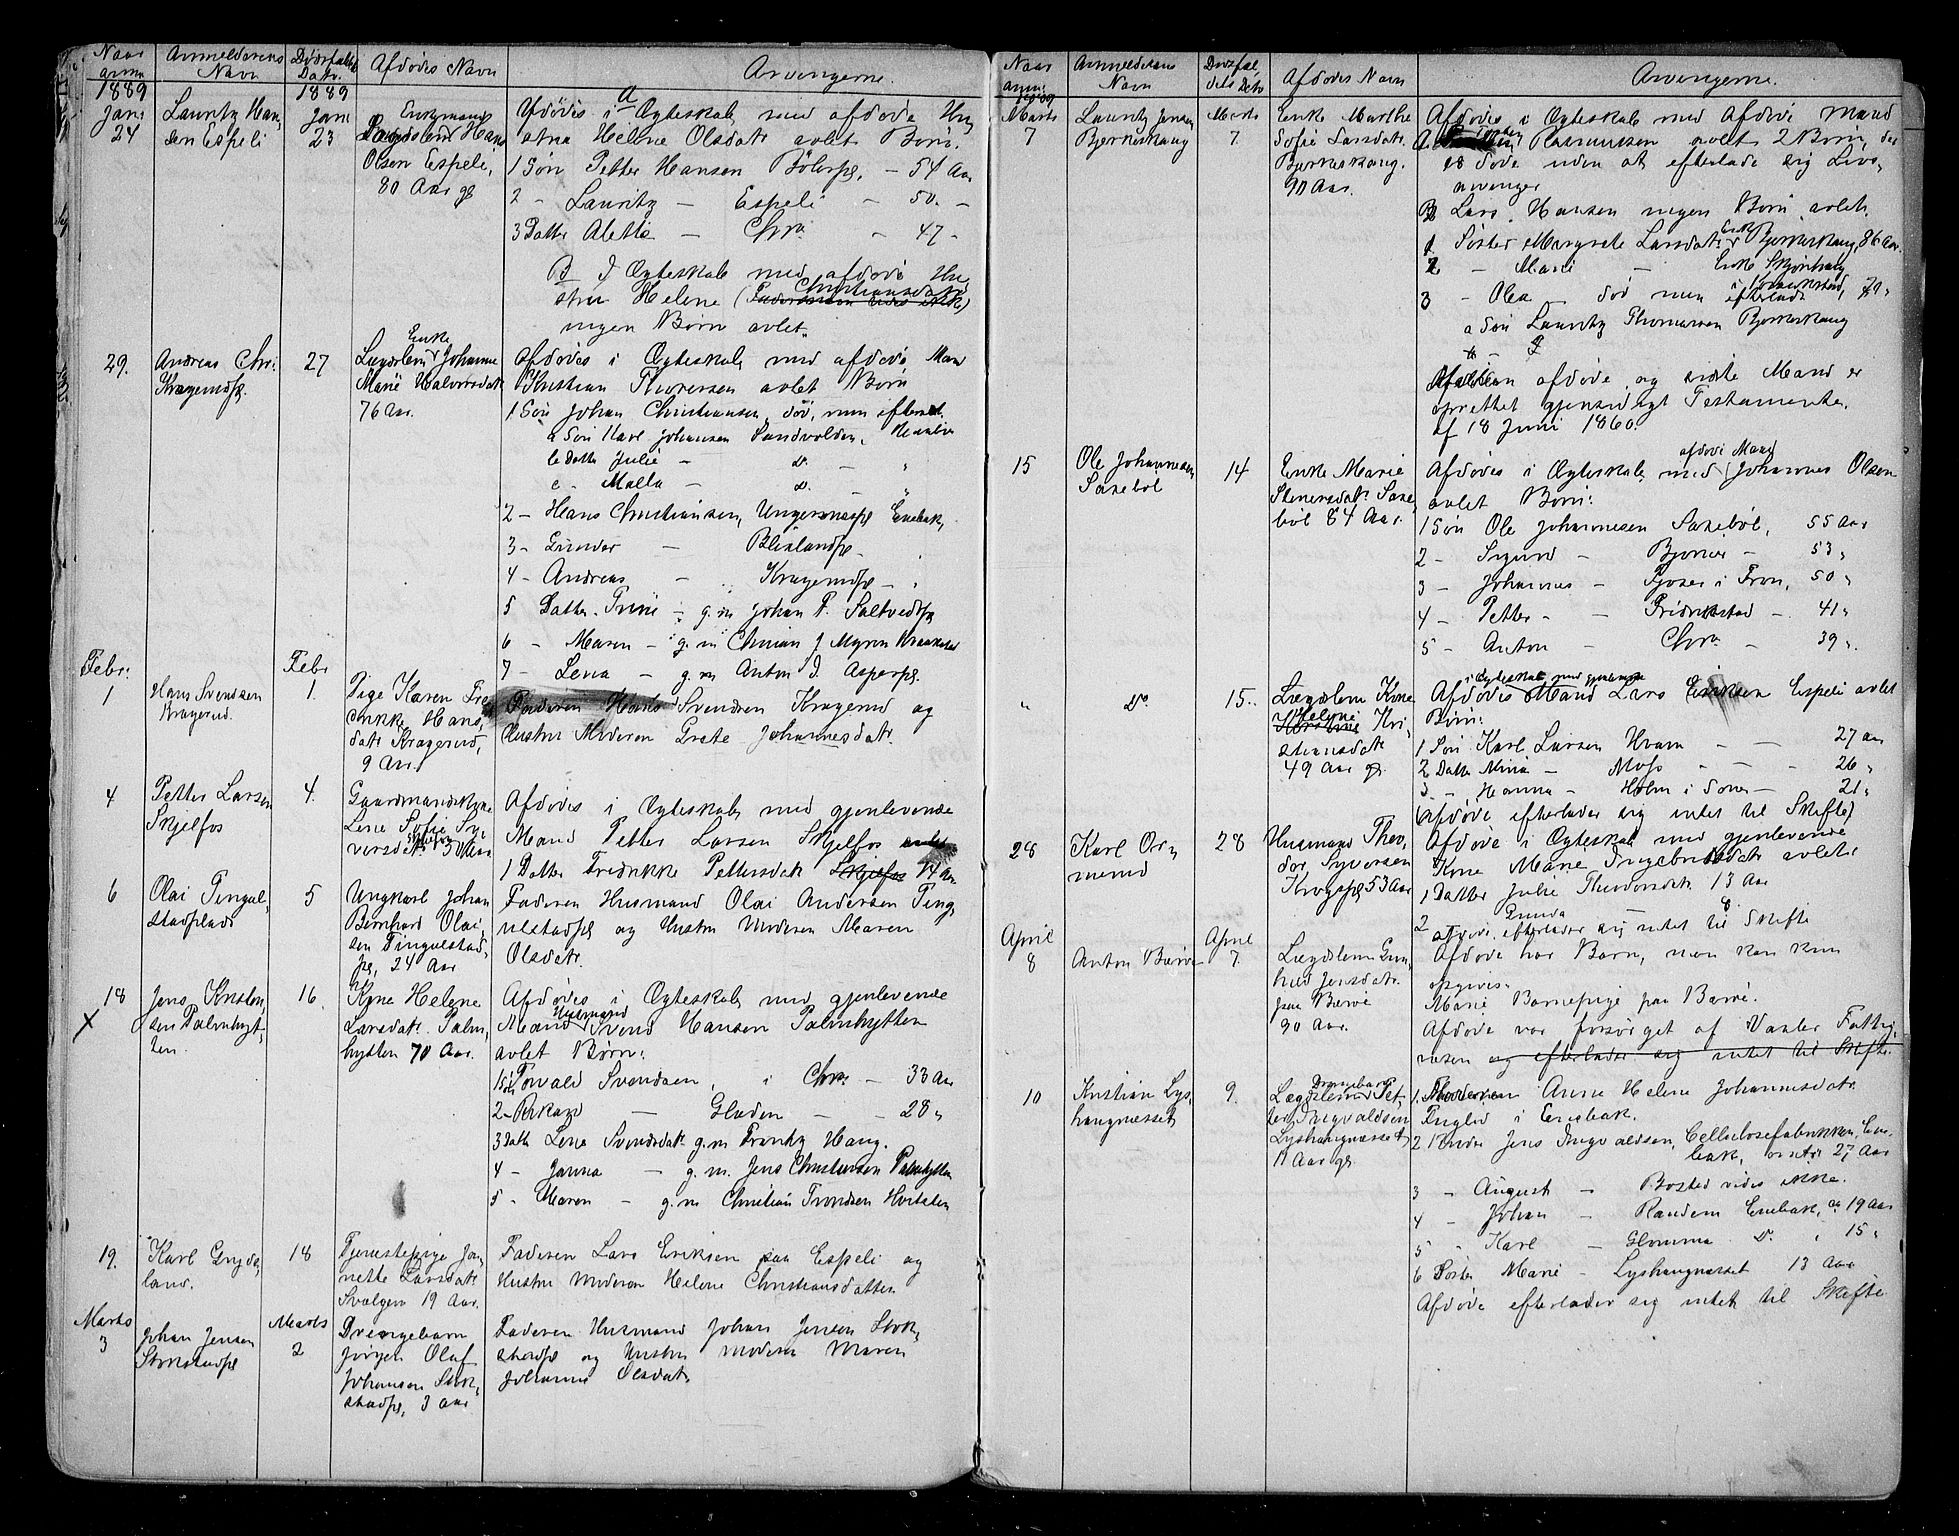 Naar anm
Anmelderens Navn
Dødsfaldets Dato
Afdødes Navn
Arvingerne.
1889
1889
Jan. 24
Lauritz Han,
sen Espeli
Jan 23
Enkemand
Lægdslem Hans
Olsen Espeli,
80 Aar gl
A
Afdødes i Ægteskab med afdøde Hu
stru Helene Olsdatr avlet Børn:
1 Søn Petter Hansen Bölerpl. – 54 Aar
2 – Lauritz – Espeli – 50 –
3 Datter Alette – Chra – 47 –
B I Ægteskab med afdøde Hu
stru Helene Christiansdatr
ingen Børn avlet.
29.
Andreas Chri.
Kragerudpl.
27
Enke
Lægdslem Johanne
Marie Halvorsdatr
76 Aar.
Afdødes i Ægteskab med afdøde Mand
Kristian Thoresen avlet Børn
1 Søn Johan Christiansen, død, men efterladt
a Søn Karl Johansen Sandvolden,
b Datter Julie – Do –
c – Malla – Do –
2 – Hans Christiansen, Enebak,
3 – Gunder – Blixlandpl –
4 – Andreas – Kragerudpl – "
5 Datter Trine – g. m Johan P. Saltvedtpl
6 – Maren – g. m Chrnian J Myren Kraakstad
7 – Lena – g. m Anton I. Asperpl.
Febr. 1
Hans Svendsen
Kragerud.
Febr 1.
Pige Karen Fre
drikke Hans,
datr Kragerud,
9 Aar
Faderen Hans Svendsen Kragerud og
Hustru Moderen Grete Johannesdatr.
4
Petter Larsen
Skjelfos
4.
Gaardmandskone
Lene Sofie Sy,
versdatr Skjelfos
Afdødes i Ægteskab med gjenlevende
Mand Petter Larsen Skjelfos avlet
1 Datter Fredrikke Pettersdatr Skjelfos 14 Aar
6
Olai Tingul,
stadplads
5
Ungkarl Johan
Bernhard Olai,
sen Tingulstad,
pl, 24 Aar
Faderen Husmand Olai Andersen Ting,
ulstadpl og Hustru Moderen Maren
Olsdatr.
18
X
Jens Kristen,
sen Palmhyt,
ten.
16.
Kone Helene
Larsdatr. Palm,
hytten 70 Aar.
Afdødes i Ægteskab med gjenlevende
Mand Husmand Svend Hansen Palmhytten
avlet Børn:
1 Søn Torvald Svendsen, i Chra – 33 Aar
2 – Rikard – Gladen – – 28 "
3 Datter Lene Svendsdatr g. m Frantz Haug.
4 – Janna – g. m. Jens Christensen Palmhytten
5 – Maren – g. m Christian Trondsen Hvitsten
19.
Karl Gryde,
land.
18
Tjenestepige Jan,
nette Larsdatr
Svalgen 19 Aar.
Faderen Lars Eriksen paa Espeli og
Hustru Moderen Helene Christiansdatter
Marts 3
Johan Jensen
Stokstadpl
Marts 2
Drengebarn
Jörgen Oluf
Johansen Stok,
stadpl, 3 Aar
Faderen Husmand Johan Jensen Stok,
stadpl og Hustru moderen Maren
Johanne Olsdatr.
Naar anm:
Anmelderens Navn
Dødsfal, dets Dato
Afdødes Navn
Arvingerne.
1889
Marts 7
Lauritz Jensen
Bjerkeskaug
Marts 7.
Enke Marthe
Sofie Larsdatr
Bjerkeskaug.
90 Aar.
Afdødes i Ægteskab med Afdøde Mand
A. Rasmussen avlet 2 Børn, der
er døde uden at efterlade sig Livs,
arvinger
B Lars Hansen ingen Børn avlet.
1 Söster Margrete Larsdatr Enke Bjerkeskaug, 86 Aar.
2 – Marie – Enke
3 – Olea – död men efterladt
a Søn Lauritz Thomassen Bjerkeskaug
Mellem afdøde og sidste Mand er
oprettet gjensidigt Testamente
af 18 Juni 1860.
15
Ole Johannesen
Saxebøl
14
Enke Marie
Stenersdatr Saxe,
böl 84 Aar.
Afdødes i Ægteskab med afdøde Mand Johannes Olsen
avlet Børn:
1 Søn Ole Johannesen Saxebøl, 55 Aar
2 – Sigurd – Bjerner – 53 "
3 – Johannes – i Fron, 50 "
4 – Petter – – Fridrikstad – 41 "
5 – Anton – Chra – 39 "
"
Do.
15.
Lægdslem Kone
Helene Kri
stiansdatr
49 Aar gl.
i Ægteskab med gjenlev
Afdødes Mand Lars Eriksen Espeli avlet
Børn:
1 Søn Karl Larsen Hvam – – 27 Aar
2 Datter Mina – Moss – – – 26 "
3. – Hanna – Holm i Soner – 21 "
(Afdøde efterlader sig intet til Skifte)
28
Karl Or,
merud
28
Husmand Theo,
dor Syversen
Krogspl 53 Aar
Afdøde i Ægteskab med gjenlevende
Kone Marie Ingebretsdatr avlet:
1 Datter Julie Theodorsdatr. 13 Aar
2 Gunda – 8
Afdøde efterlader sig intet til Skifte
April 8
Anton Børve
April 7.
Lægdslem Gun,
hild Jensdatr.
paa Børve
90 Aar.
Afdøde har Børn, men kan kun
opgives.
Marie Barnepige paa Børve.
Afdøde var forsørget af Vaaler Fattig,
væsen og efterlader sig intet til Skifte.
10
Kristian Lys,
haugnæsset
9.
Drengebarn
Lægdslem Pet,
ter Ingvaldsen
Lyshaugnæsset
11 Aar gl.
1. Moderen Anne Helene Johannesdatr.
Fuglød i Enebak.
2 Broder Jens Ingvaldsen, Cellulosefabrikken, Ene
bak, omtr 27 Aar
3 – August – Bosted vides ikke.
4 – Johan – Randem Enebak, ca 19 Aar
5 " Karl – Glomma Do. " 15 "
6 Søster Marie – Lyshaugnæsset 13 Aar
Afdøde efterlader sig intet til Skifte